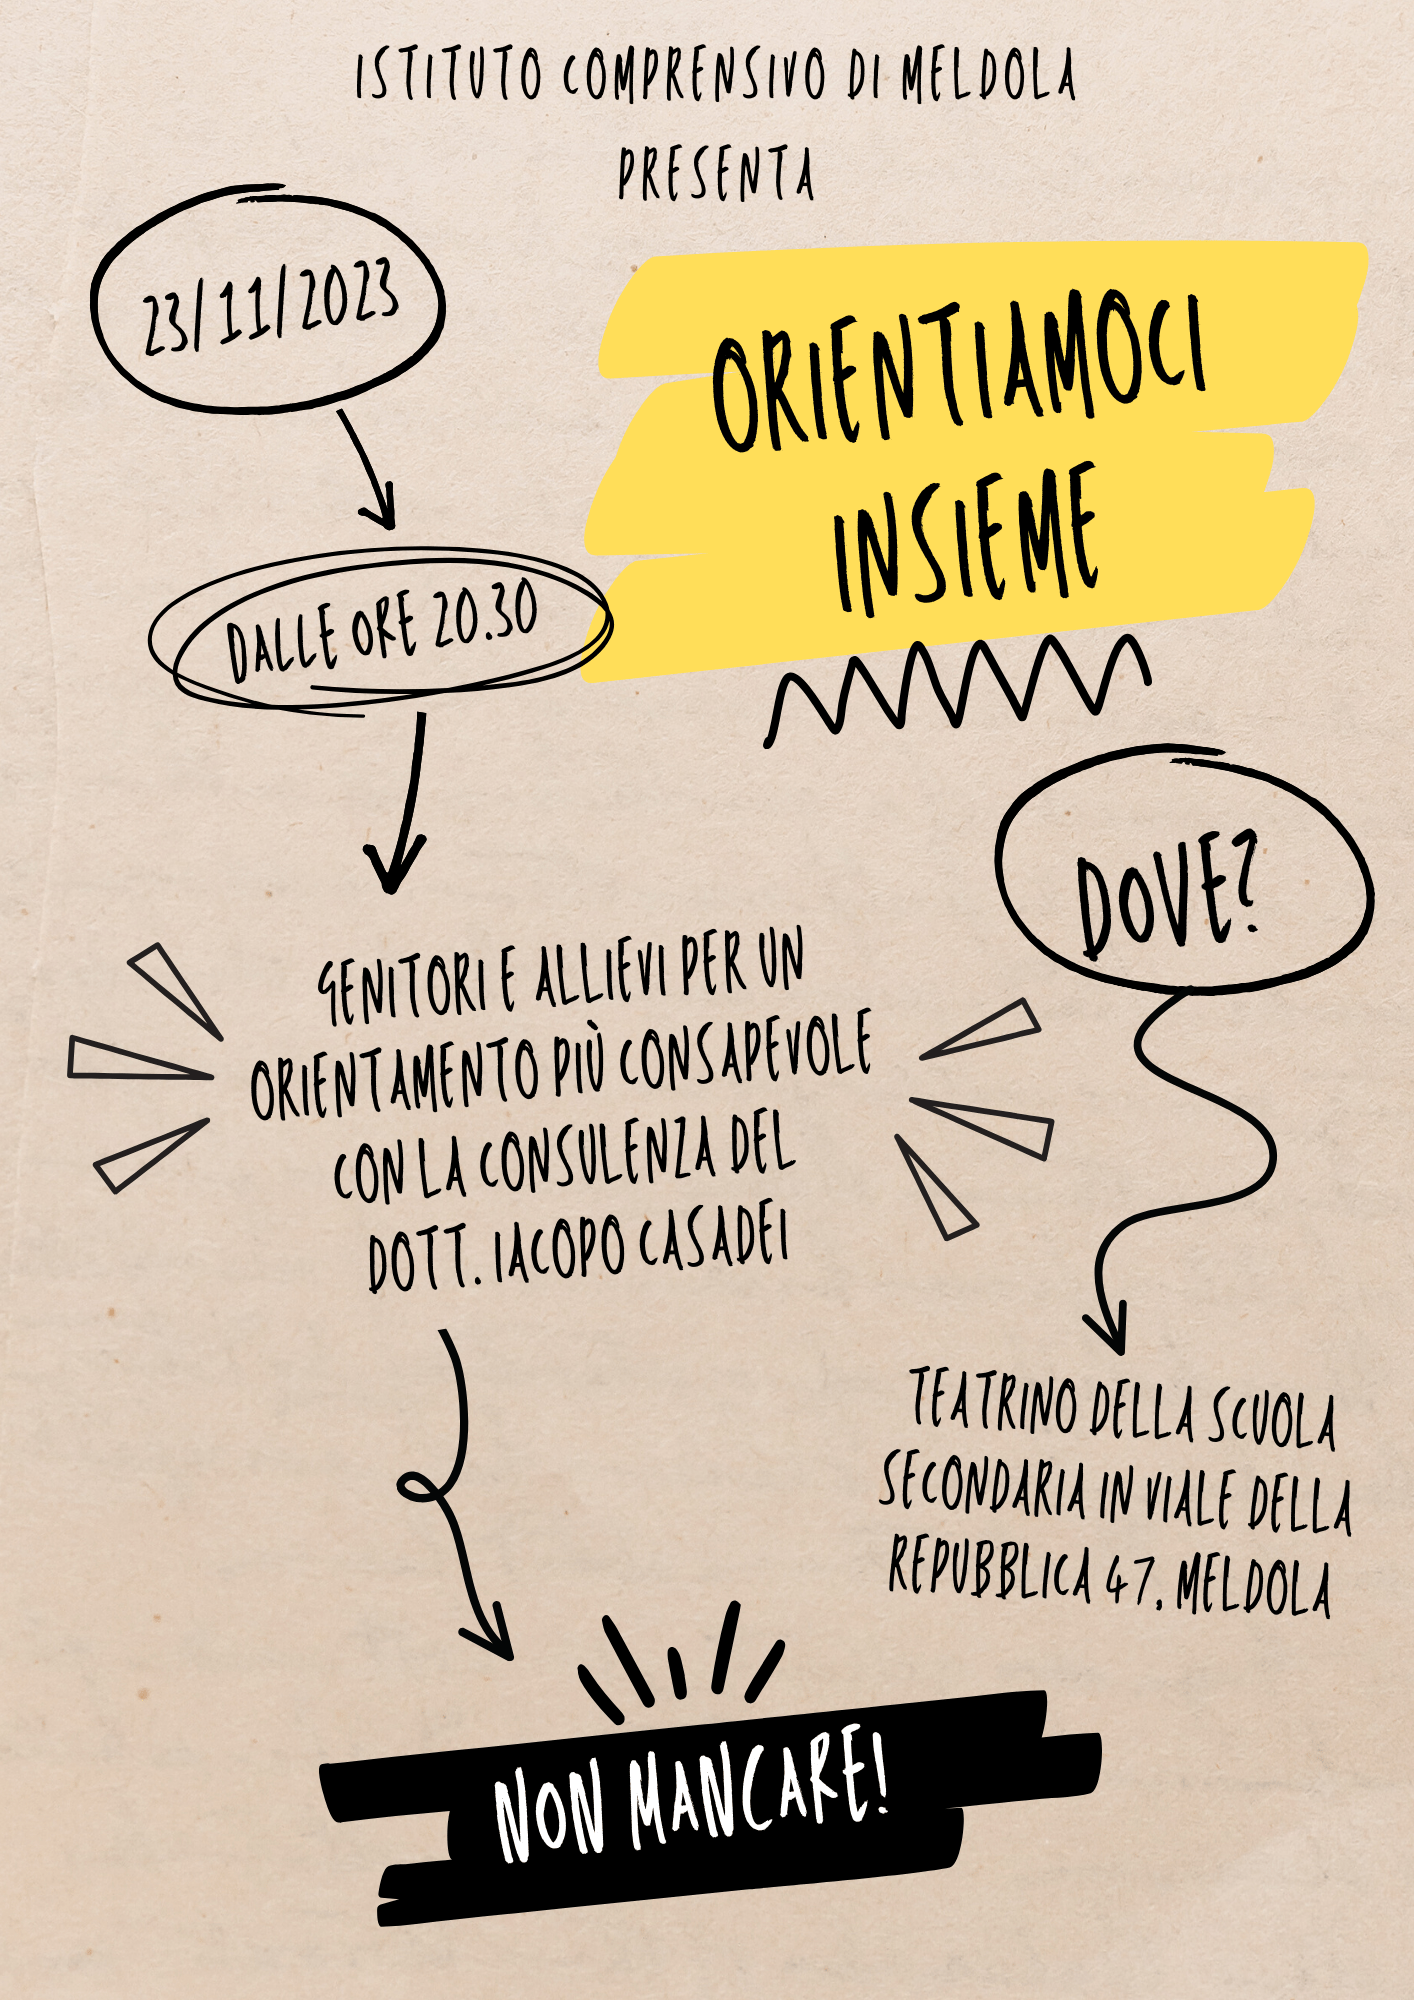 ISTITUTO COMPRENSIVO DI MELDOLA
PRESENTA
23/11/2023
ORIENTIAMOCI
INSIEME
DALLE ORE 20.30
DOVE?
GENITORI E ALLIEVI PER UN
ORIENTAMENTO PIÙ CONSAPEVOLE
CON LA CONSULENZA DEL
DOTT. IACOPO CASADEI
TEATRINO DELLA SCUOLA
SECONDARIA IN VIALE DELLA
REPUBBLICA 47, MELDOLA
NON MANCARE!